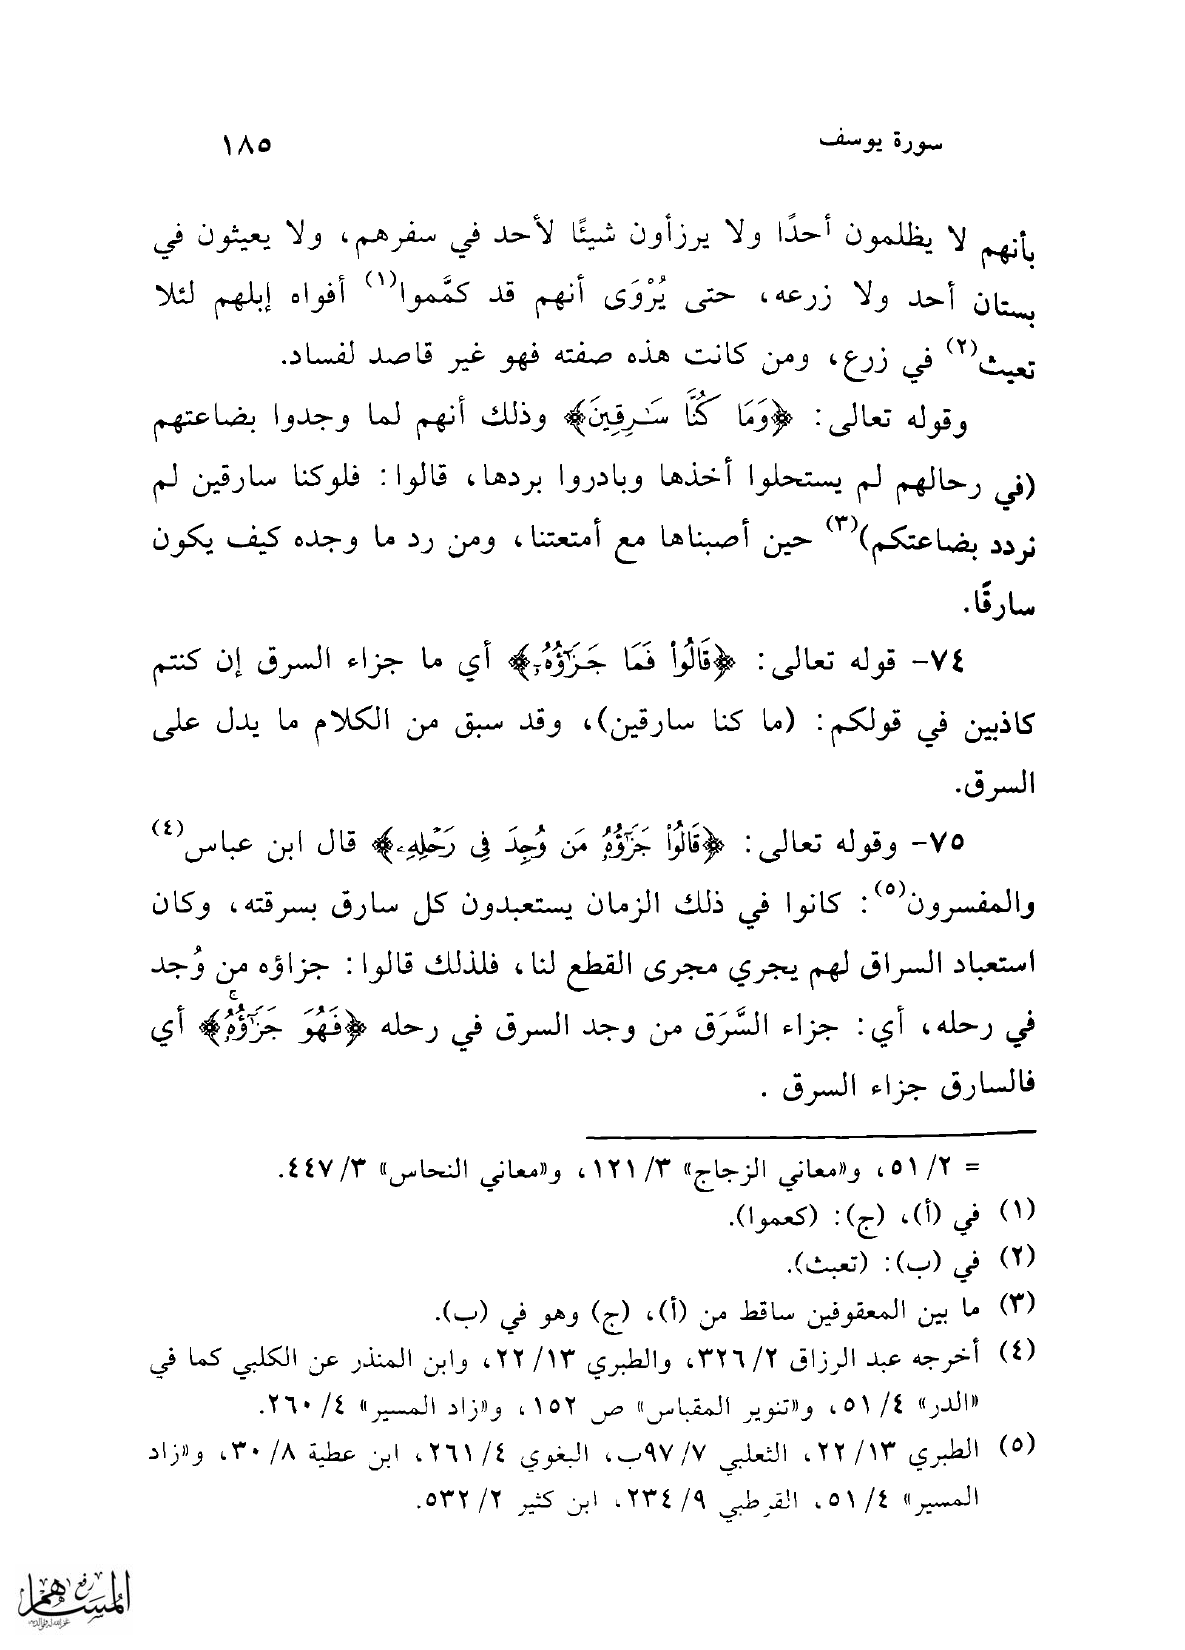 سورة يوسف
١٨٥
بأنهم لا يظلمون أحدًا ولا يرزأون شيئًا لأحد في سفرهم، ولا يعيثون في
بستان أحد ولا زرعه، حتى يُرْوَى أنهم قد كمَّموا(١) أفواه إبلهم لئلا
تعيث(٢) في زرع، ومن كانت هذه صفته فهو غير قاصد لفساد.
وقوله تعالى: ﴿وَمَا كُنَّا سَـٰرِقِينَ﴾ وذلك أنهم لما وجدوا بضاعتهم
(في رحالهم لم يستحلوا أخذها وبادروا بردها، قالوا: فلوكنا سارقين لم
نردد بضاعتكم)(٣) حين أصبناها مع أمتعتنا، ومن رد ما وجده كيف يكون
سارقًا.
٧٤- قوله تعالى: ﴿قَالُوا۟ فَمَا جَزَٰٓؤُهُۥٓ﴾ أي ما جزاء السرق إن كنتم
كاذبين في قولكم: (ما كنا سارقين)، وقد سبق من الكلام ما يدل على
السرق.
٧٥- وقوله تعالى: ﴿قَالُوا۟ جَزَٰٓؤُهُۥ مَن وُجِدَ فِى رَحْلِهِۦ﴾ قال ابن عباس(٤)
والمفسرون(٥): كانوا في ذلك الزمان يستعبدون كل سارق بسرقته، وكان
استعباد السراق لهم يجري مجرى القطع لنا، فلذلك قالوا: جزاؤه من وُجد
في رحله، أي: جزاء السَّرَق من وجد السرق في رحله ﴿فَهُوَ جَزَٰٓؤُهُۥۚ﴾ أي
فالسارق جزاء السرق .
= ٢/ ٥١، و«معاني الزجاج» ٣/ ١٢١، و«معاني النحاس» ٣/ ٤٤٧.
(١) في (أ)، (ج): (كعموا).
(٢) في (ب): (تعبث).
(٣) ما بين المعقوفين ساقط من (أ)، (ج) وهو في (ب).
(٤) أخرجه عبد الرزاق ٢/ ٣٢٦، والطبري ١٣/ ٢٢، وابن المنذر عن الكلبي كما في
«الدر» ٤/ ٥١، و«تنوير المقباس» ص ١٥٢، و«زاد المسير» ٤/ ٢٦٠.
(٥) الطبري ١٣/ ٢٢، الثعلبي ٧/ ٩٧ب، البغوي ٤/ ٢٦١، ابن عطية ٨/ ٣٠، و«زاد
المسير» ٤/ ٥١، القرطبي ٩/ ٢٣٤، ابن كثير ٢/ ٥٣٢.